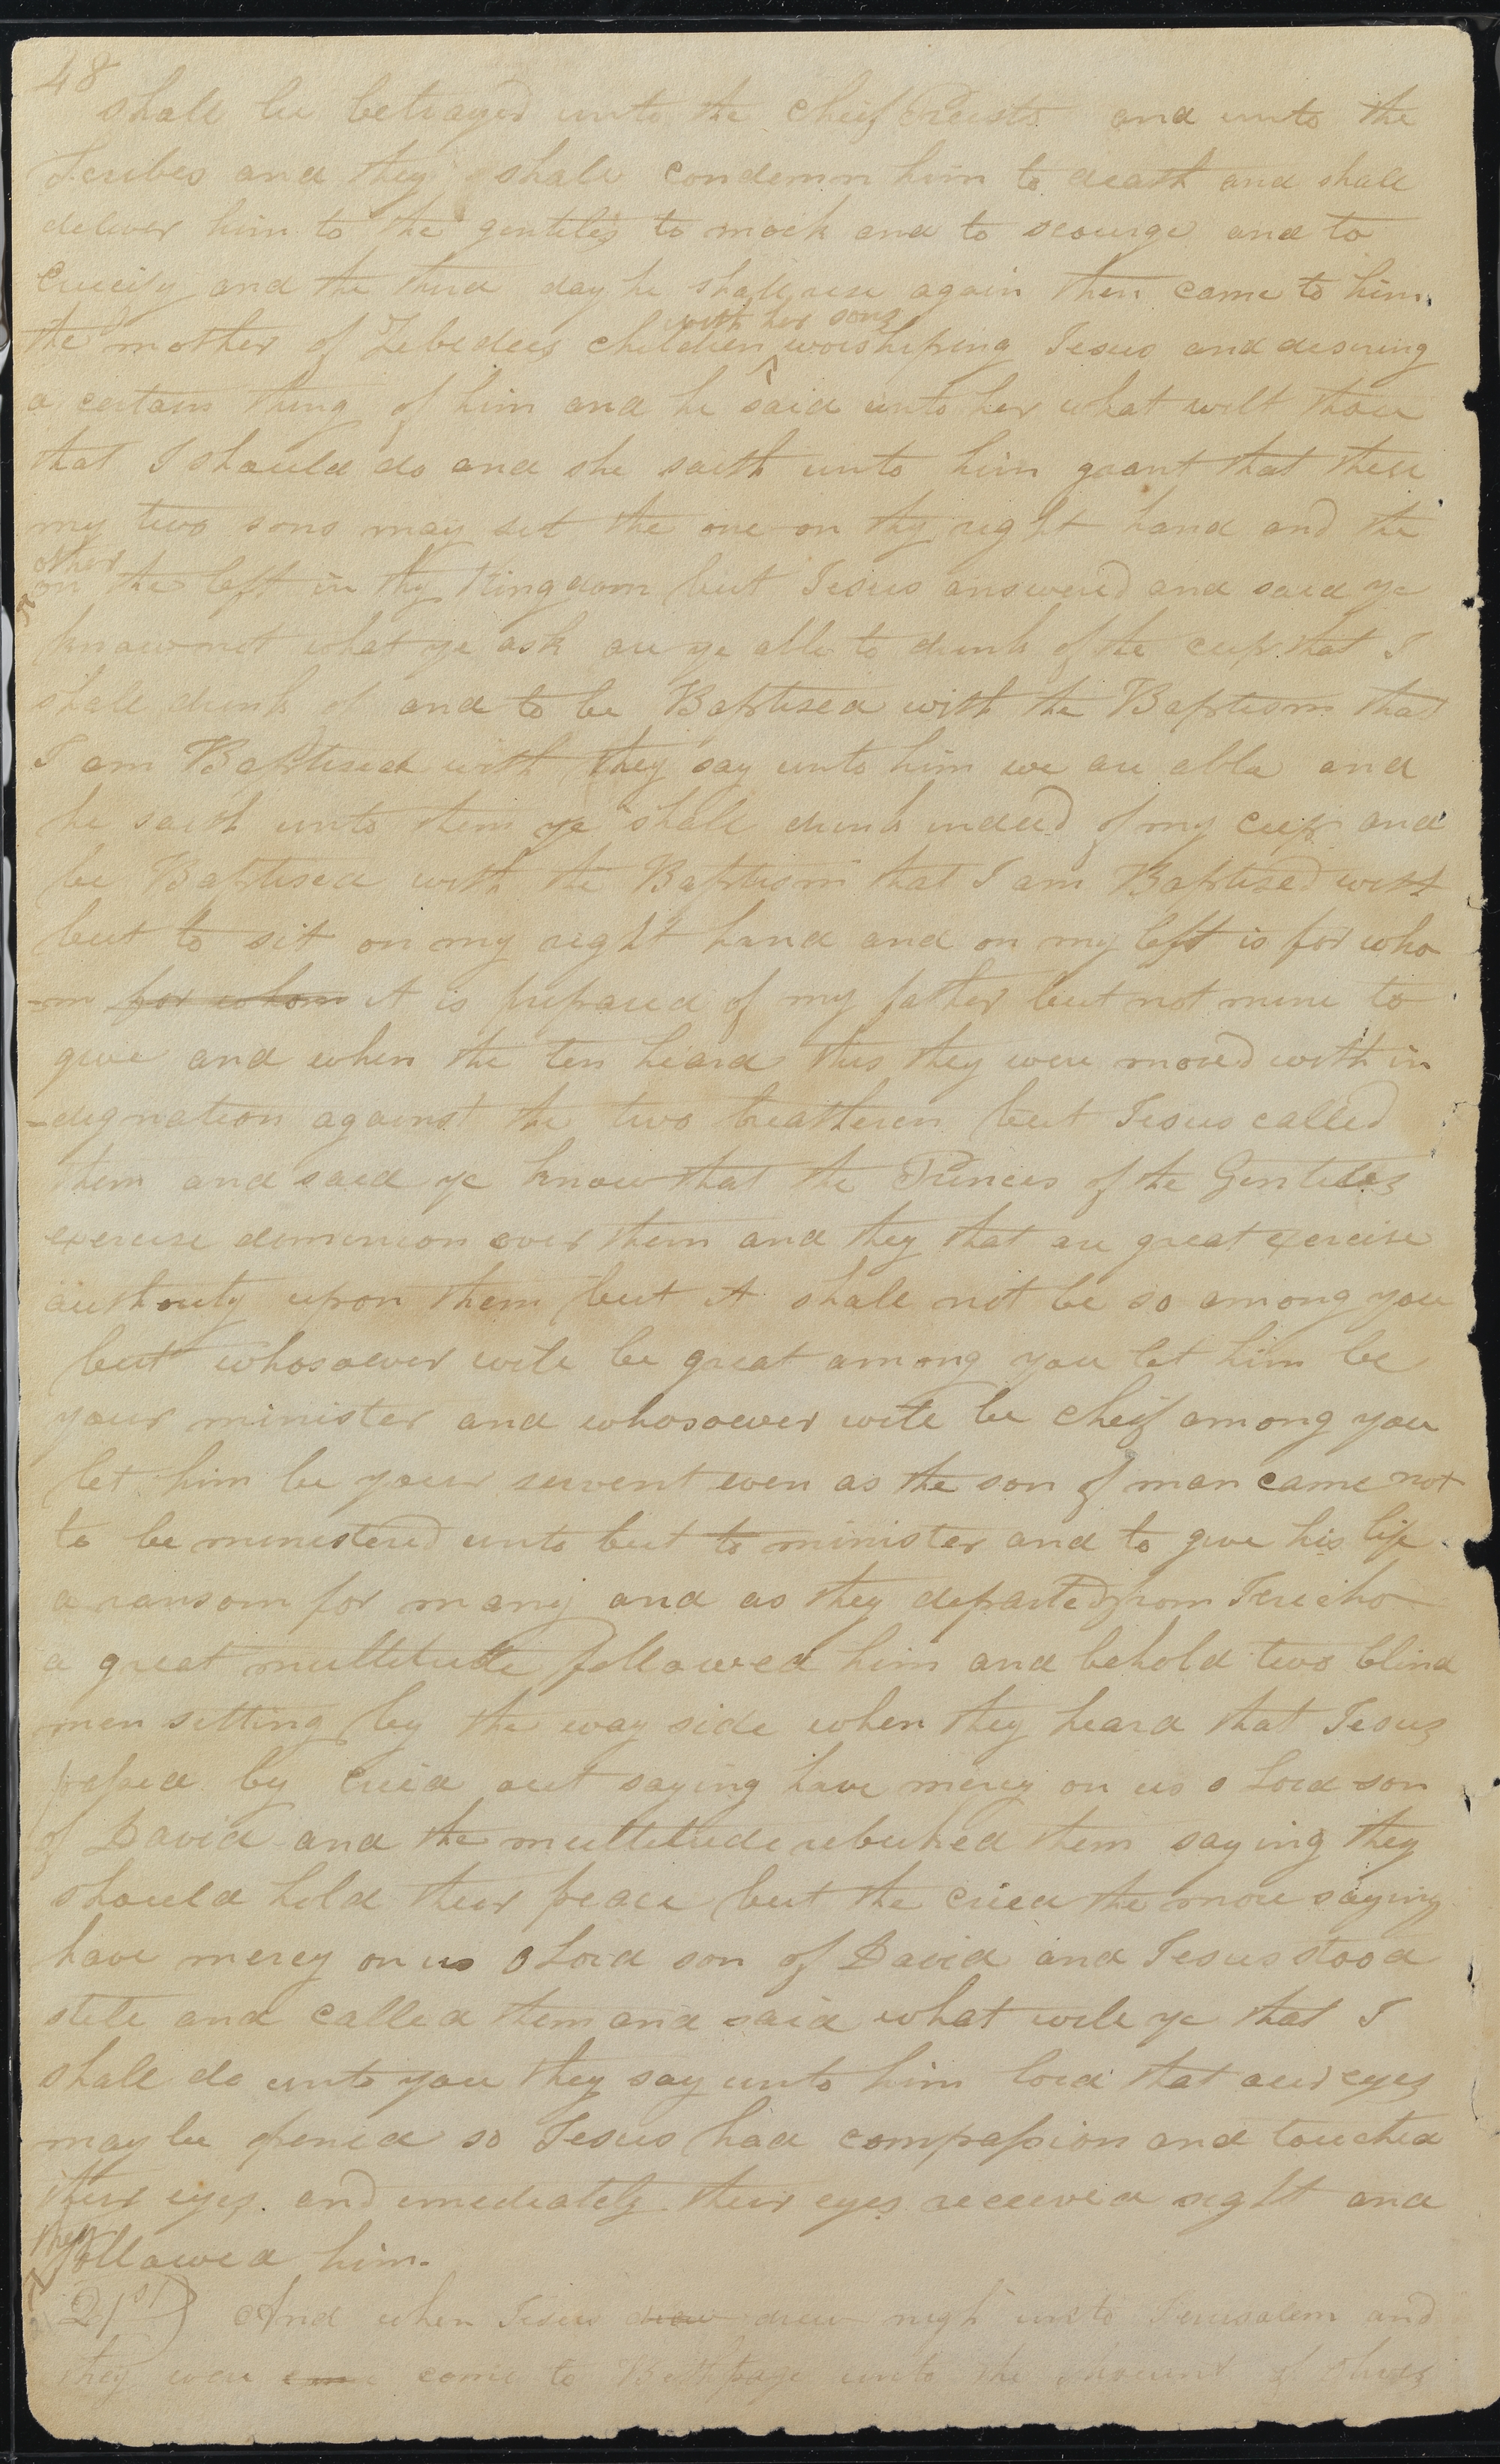 48
shall be betrayed unto the cheif Priests and unto the
Scribes and they shall condemn him to death and shall
deliver him to the gentiles to mock and to scourge and to
Crucify and the third day he shall rise again then came to him
with her sons
the mother of Zebedees children ^ worshiping Jesus and desireing
a certain thing of him and he said unto her what wilt thou
that I should do and she saith unto him grant that these
my two sons may set the one on thy right hand and the
other
^ on the left in thy Kingdom but Jesus answered and said ye
know not what ye ask are ye able to drink of the cup that I
shall drink of and to be Baptised with the Baptism that
I am Baptised with they say unto him we are able and
he saith unto them ye shall drink indeed of my cup and
be Baptised with the Baptism that I am Baptised with
but to sit on my right hand and on my left is for who
-m for whom it is prepared of my father but not mine to
give and when the ten heard this they were moved with in
-dignation against the two breatheren but Jesus called
them and said ye know that the Princes of the Gentiles
exercise dominion over them and they that are great exercise
authority upon them but it shall not be so among you
but whosoever will be great among you let him be
your minister and whosoever will be cheif among you
let him be your servent even as the son of man came not
to be ministered unto but to minister and to give his life
a ransom for many and as they departed from Jericho
a great multitude followed him and behold two blind
men setting by the way side when they heard that Jesus
passed by cried out saying have mercy on us o Lord son
of David and the multitude rebuked them saying they
should hold their peace but the cried the more saying
have mercy on us O Lord son of David and Jesus stood
still and called them and said what will ye that I
shall do unto you they say unto him lord that our eyes
may be opened so Jesus had compassion and touched
their eyes. and imediately their eyes received sight and
they
^ followed him.
21st) And when Jesus drew drew nigh unto Jerusalem and
they were come come to Bethphage unto the mount of Olives